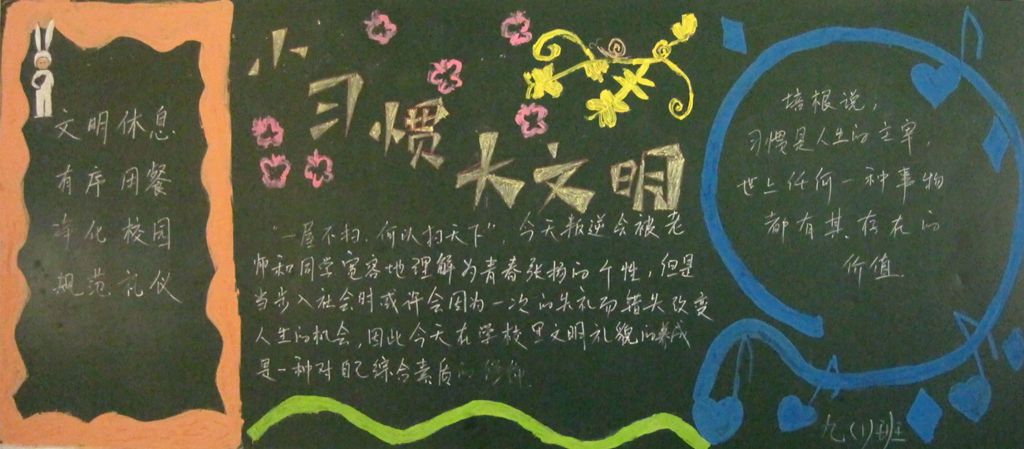 文明休息
有序用餐
净化校园
规范礼仪
小习惯大文明
“一屋不扫，何以扫天下”，今天叛逆会被老
师和同学宽容地理解为青春张扬的个性，但是
当步入社会时或许会因为一次的失礼而错失改变
人生的机会，因此今天在学校里文明礼貌的养成
是一种对自己综合素质的
培根说；
习惯是人生的主宰，
世上任何一种事物
都有其存在的
价值
九（1）班